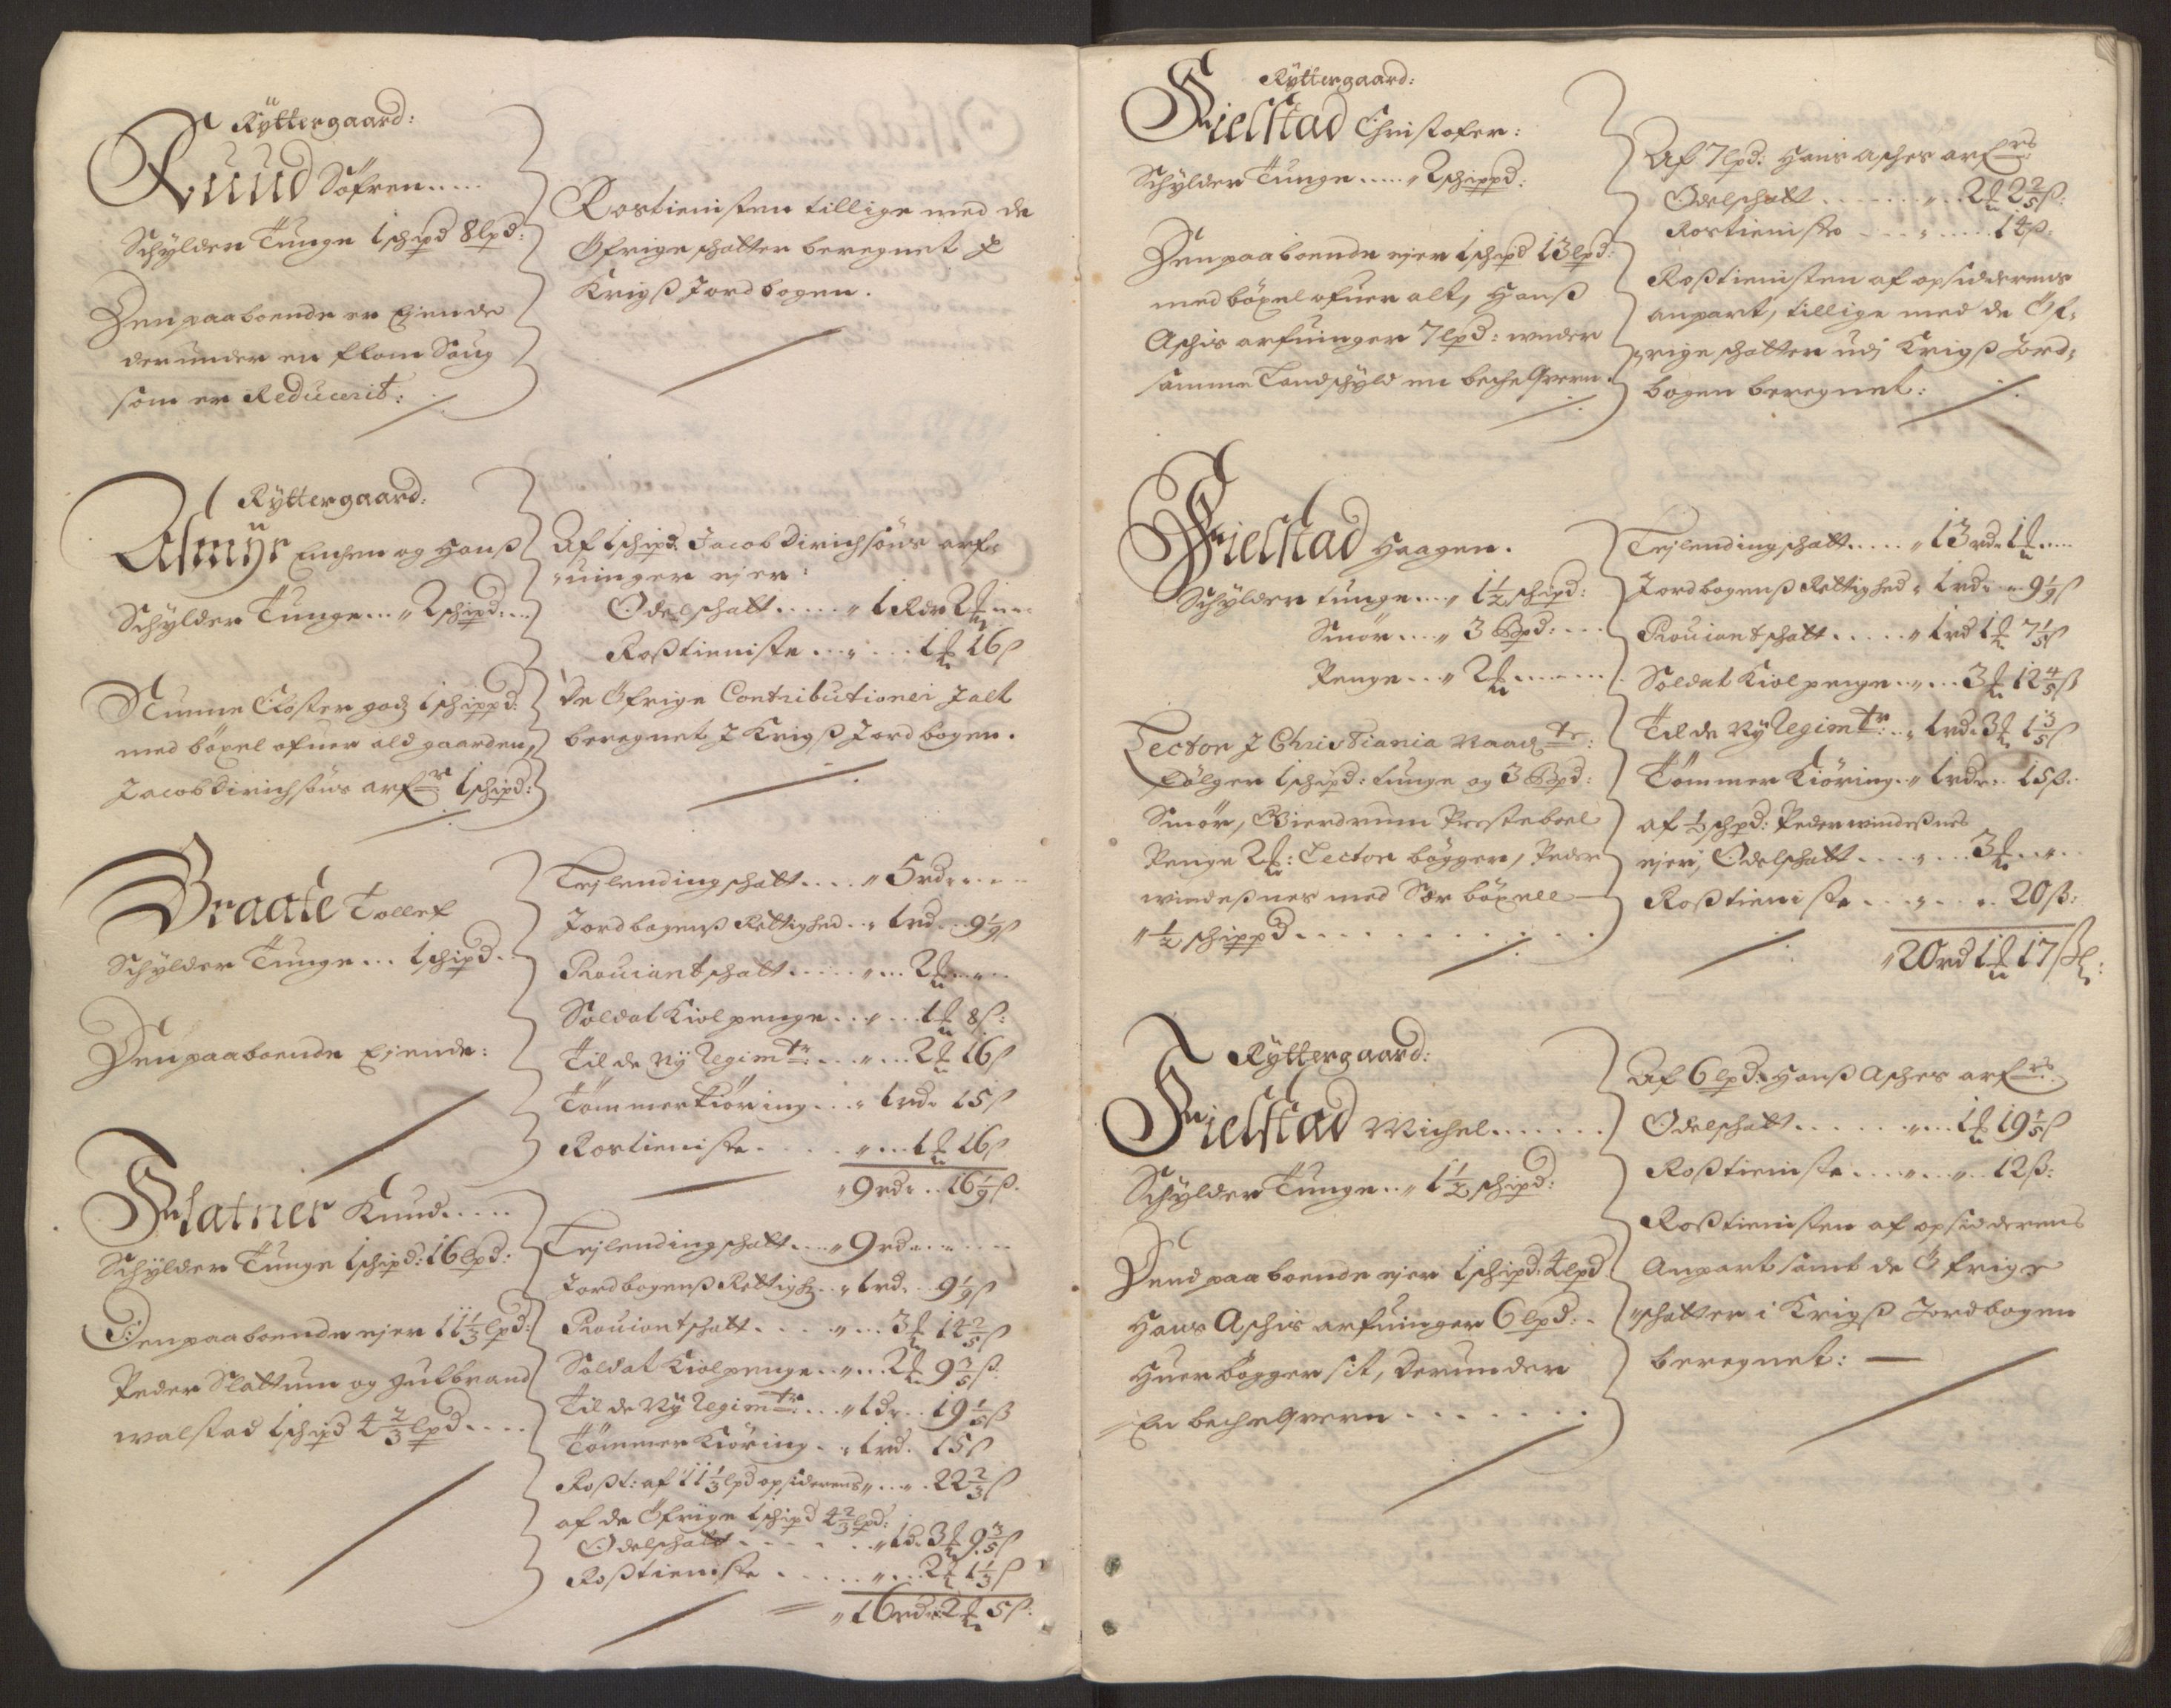 Ryttergaard:
Ruud Søfren.....
Schylder Tunge 1 schipd 8 lpd:
Den paaboende er Eiende
derunder en flom Saug
som er Reducerit:
Rostienisten tillige med de
Øfrige schatter beregnet J
Krigß Jordbogen.
Ryttergaard:
Asmyr Enchen og Hanß
Schylder Tunge... 2 schipd...
Nunne Closter godz 1 schippd:
med böxel ofuer ald gaarden,
Jacob Dirichsöns arf:r 1 schipd:
Af 1 schipd. Jacob Dirichsöns arf=
uinger ejer:
Odelschatt..... 1 Rdr 2 ℔...
Roßtieniste...... 1 ℔ 16 ß
De Øfrige Contributioner Jalt
beregnet J Krigß Jordbogen.
Braate Tollef
Schylder Tunge... 1 schipd.
Den paaboende Ejende:
Tejlendingschatt.... 5 rdr....
Jordbogenß Rettighed.. 1 rdr.. 9 1/9 ß
Prouiantschatt........ 2 ℔....
Soldat Kiolpenge...... 1 ℔ 8 ß:
Til de Ny Regimtr:..... 2 ℔ 16 ß
Tømmerkiøring... 1 rdr 15 ß
Rostieniste........ 1 ℔ 16 ß
9 rdr.. 16 1/9 ß.
Flatner Knud.....
Schylder Tunge 1 schipd: 16 lpd:
Den paaboende ejer 11 1/3 lpd:
Peder Slattum og Gulbrand
Walstad 1 schipd 4 2/3 lpd....
Tejlendingschatt.... 9 rdr.....
Jordbogenß Rettigh.. 1 rdr. 9 1/9 ß
Prouiantschatt....... 3 ℔ 14 2/5 ß
Soldat Kiolpenge..... 2 ℔ 9 3/5 ß
Til de Ny Regimtr:... 1 dr.. 19 1/5 ß
Tømmer Kiøring.. 1 rd. 15 ß
Roßt: af 11 1/3 lpd opsiderens.... 22 2/3 ß
af de Øfrige 1 schipd 4 2/3 lpd:
Odelschatt....... 1 dr 3 ℔ 9 3/5 ß
Roßtieniste....... 2 ℔ 1 1/3 ß
16 rdr 2 ℔ 5 ß.
Ryttergaard:
Fielstad Christofer:
Schylder Tunge..... 2 schippd:
Den paaboende ejer 1 schipd 13 lpd:
med böxel ofuer alt, Hanß
Aschis arfuinger 7 lpd: under
samme Landschyld en bechequern.
Af 7 lpd: Hans Asches arf:rs
Odelschatt........ 2 ℔ 2 2/5 ß:
Rostieniste........ 14 ß.
Roßtienisten af opsidderens
anpart, tillige med de Øf=
rige schatter udj Krigß Jord=
bogen beregnet:
Fielstad Haagen.
Schylder tunge... 1 1/2 schipd:
Smör.... 3 Bpd:...
Penge... 2 ℔.......
Lector J Christiania Raadtr:
følger 1 schipd: tunge og 3 Bpd:
Smör, Gierdrum Presteboel
Penge 2 ℔: Lector bøgger, Peder
windeßnes med Sær böxell
1/2 schippd............
Tejlendingschatt..... 13 rdr 1 ℔....
Jordbogenß Rettighed 1 rdr.. 9 1/9 ß
Prouiantschatt..... 1 rd 1 ℔ 7 1/5 ß
Soldat Kiolpenge..... 3 ℔ 12 4/5 ß
Til de Ny Regimtr:.. 1 rdr 3 ℔ 1 3/5 ß
Tømmer Kiøring.. 1 rdr.. 15 ß..
af 1/2 schpd: Peder windeßnes
ejer, Odelschatt....... 3 ℔....
Roßtieniste........ 20 ß:
20 rd 1 ℔ 17 ß:
Ryttergaard:
Fielstad Michel......
Schylder Tunge.. 1 1/2 schipd:
Dend paaboende ejer 1 schipd. 4 lpd
Hans Aschis arfuinger 6 lpd:.
Huer bøgger sit, derunder
En bechequern.......
Af 6 lpd. Hanß Asches arf:rs
Odelschatt........ 1 ℔ 19 1/5 ß
Roßtieniste....... 12 ß:
Roßtienisten af opsidderens
Anpart samt de Øfrige
schatter i Krigß Jordbogen
beregnet: